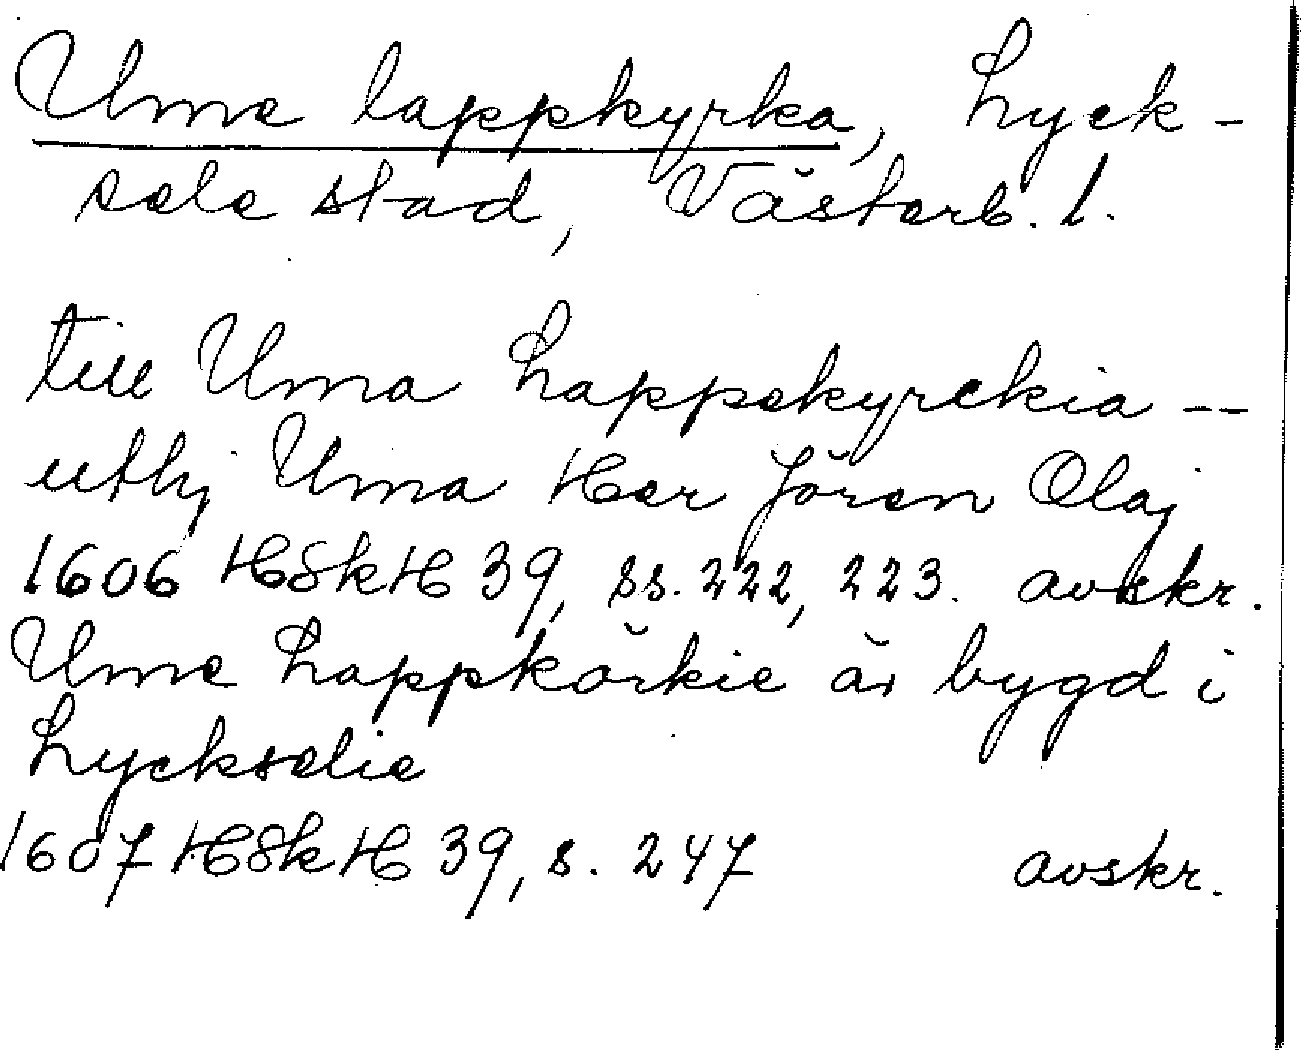 Ume lappkyrka, Lyck-
sele stad, Västerb. l.
till Uma Lappekyrckia --
uthj Uma Her Jören Olaj
1606 HSkH 39, ss. 222, 223. avskr.
Ume Lappkörkie är bygd i
Lyckselie
1607 HSkH 39, s. 247 avskr.